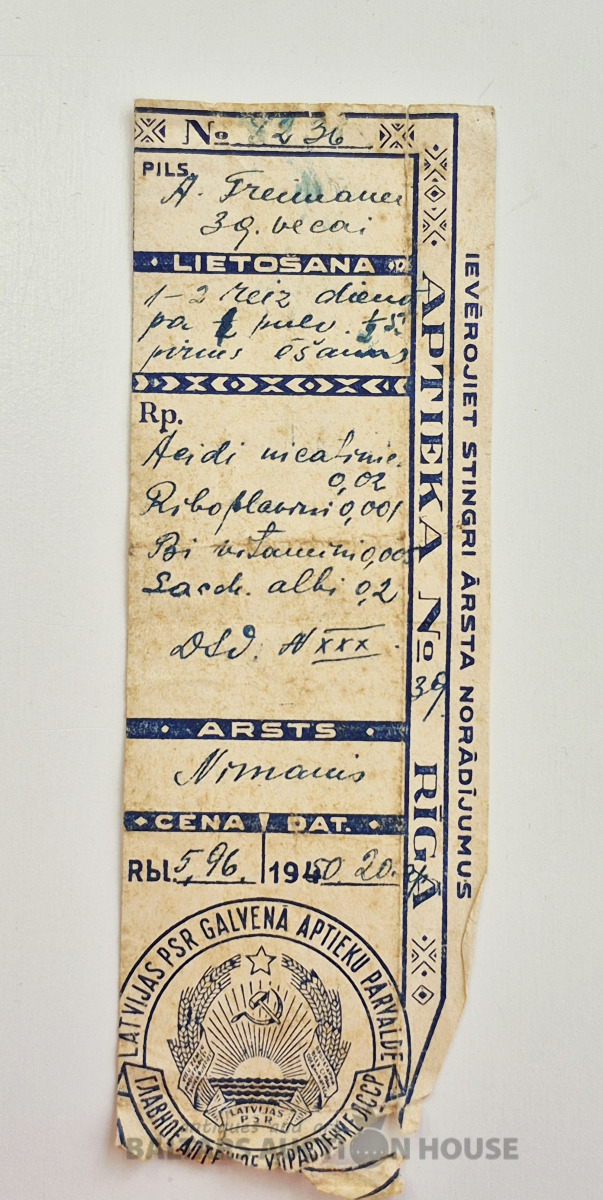 № 7236
PILS. A. Freimanei
39. vecai
LIETOŠANA
1-2 reiz dienā
pa 1 pulv. ½ st.
pirms ēšanas
Rp.
Acidi nicotinic.
0,02
Riboflavini 0,001
B1 vitamini 0,005
Sacch. albi 0,2
DSd. N XXX.
ĀRSTS
Nimanis
CENA DAT.
Rbl. 5,96. 1950. 20.
LATVIJAS PSR GALVENĀ APTIEKU PĀRVALDE
LATVIJAS
PSR
ГЛАВНОЕ АПТЕЧНОЕ УПРАВЛЕНИЕ ЛССР
APTIEKA № 39. RĪGĀ
IEVĒROJIET STINGRI ĀRSTA NORĀDĪJUMUS
BALTARS AUCTION HOUSE